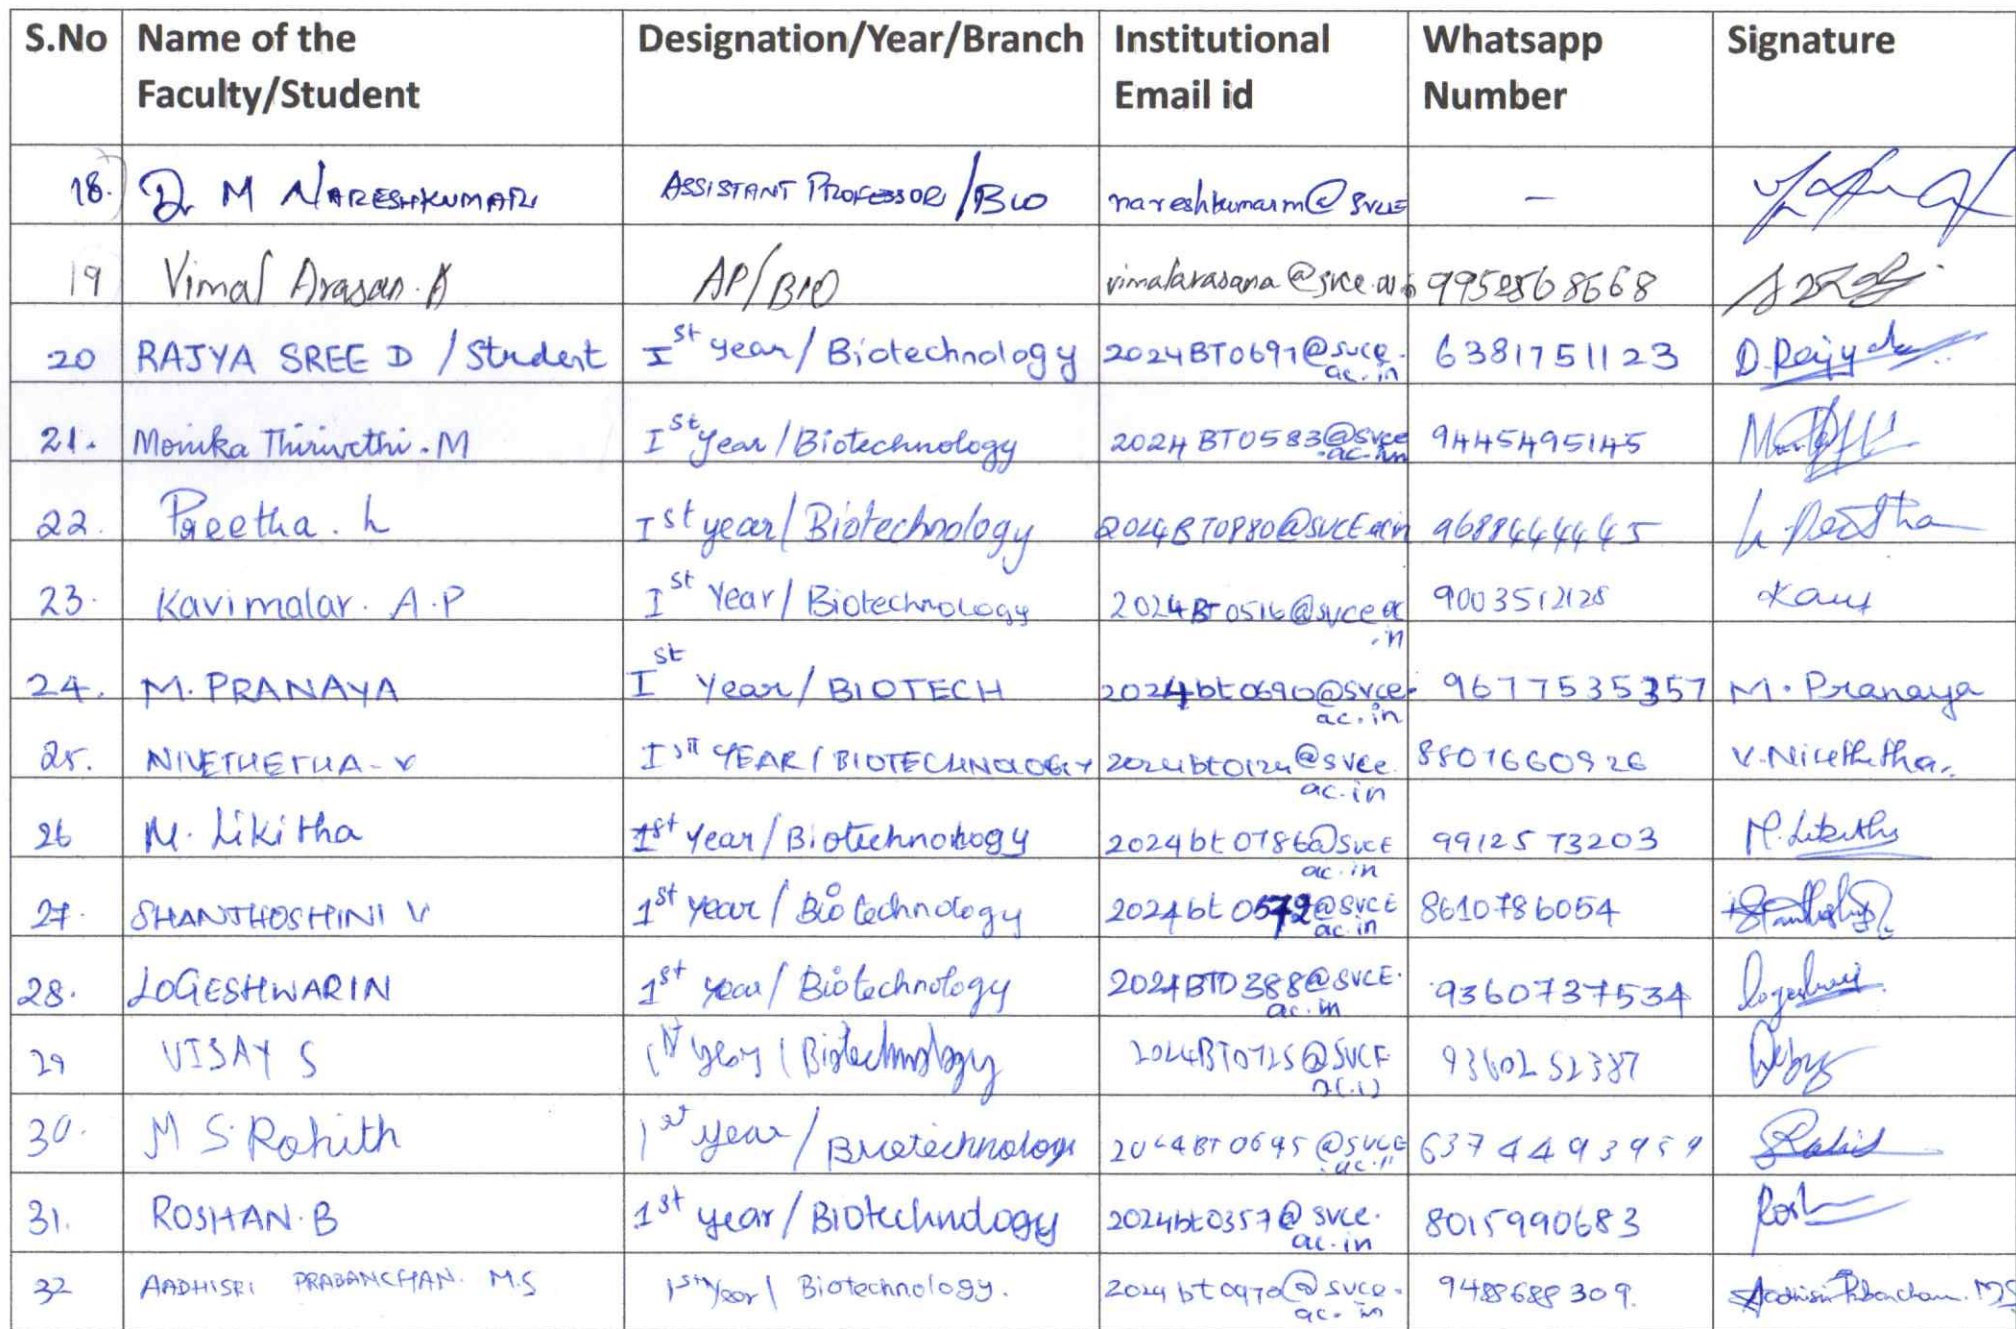 S.No Name of the Faculty/Student Designation/Year/Branch Institutional Email id Whatsapp Number Signature
18. Dr M NARESHKUMAR ASSISTANT PROFESSOR/BIO nareshkumarm@svce -
19 Vimal Arasan. A AP/BIO vimalarasana@svce.ac
20 RAJYA SREE D / Student Ist year/ Biotechnology 2024BT0697@svce.ac.in 6381751123
21. Monika Thirivethi. M Ist Year/Biotechnology 2024BT0583@svce.ac.in 9445495145
22. Preetha. L Ist year/Biotechnology 2024BT0880@SVCE.ac.in 9688444445 L. Preetha
23. Kavimalar. A.P Ist Year/ Biotechnology 2024BT0516@svce.ac.in 9003512128
24. M. PRANAYA Ist Year/ BIOTECH 2024bt0690@svce.ac.in 9677535357 M. Pranaya
25. NIVETHETHA-V Ist YEAR/BIOTECHNOLOGY 2024bt0124@svce.ac.in V.Nivethetha.
26 M. Likitha 1st Year/Biotechnology 2024bt0786@SVCE.ac.in 9912573203 M.Likitha
27. SHANTHOSHINI V 1st year/Biotechnology 2024bt0572@SVCE.ac.in 8610786054
28. LOGESHWARI N 1st year/ Biotechnology 2024BT0388@SVCE.ac.in 9360737534
29 VIJAY S 1st year/Biotechnology 2024BT0725@SVCE 9360252387
30. M S Rohith 1st year/Biotechnology 2024BT0695@SVCE.ac.in 6374493959
31. ROSHAN.B 1st year/Biotechnology 2024bt0357@svce.ac.in 8015990683
32 AADHISRI PRABANCHAN. M.S 1st year/ Biotechnology. 2024bt0970@svce.ac.in 9488688309. Aadhisri Prabanchan. M.S